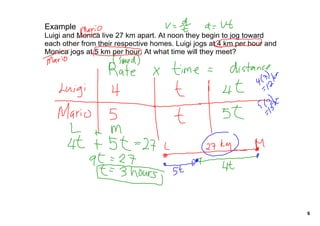 Example
Mario
v = d/t   d = Vt
Luigi and Monica live 27 km apart. At noon they begin to jog toward
each other from their respective homes. Luigi jogs at 4 km per hour and
Monica jogs at 5 km per hour. At what time will they meet?
Mario
(speed)
Rate x time = distance
Luigi 4 t 4t
4(3)
=12
Mario 5 t 5t
5(3)
=15
L + M
4t + 5t = 27
L 27 km M
9t = 27
5t 4t
t = 3 hours
5